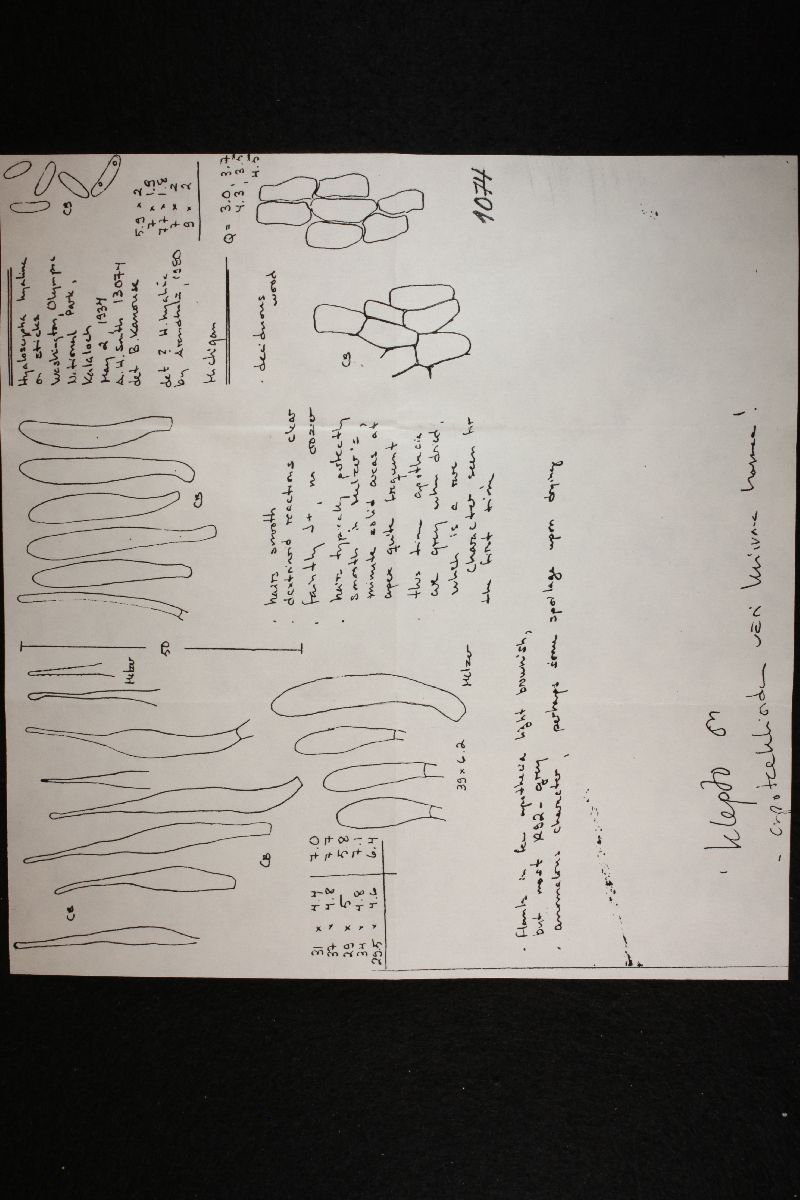 Hyaloscypha hyalina
on sticks
Washington, Olympic
National Park,
Kalaloch
May 2 1939
A.H. Smith 13074
det B. Kanouse
det ? H. hyalina
by 1980
Michigan
· deciduous
wood
CB
5.9 × 2
7 × 1.9
7.7 × 1.8
7 × 2
9 × 2
Q = 3.0, 3.7
4.3, 3.5
4.5
CB
1074
CB
50
Melzer
CB
CB
· hairs smooth
· dextrinoid reactions clear
· faintly J+, no crozier
· hairs typically perfectly
smooth in Melzer's,
minute solid areas at
apex quite frequent
· this time apothecia
are grey when dried,
which is a rare
character seen for
the first time
Melzer
39 × 6.2
31 × 4.4 7.0
37 × 4.8 7.7
29 × 5 5.8
34 × 4.8 7.1
29.5 × 4.6 6.4
· flanks in few apothecia light brownish,
but most grey
· anomalous character, perhaps some spoilage upon drying
· klepto on
väri